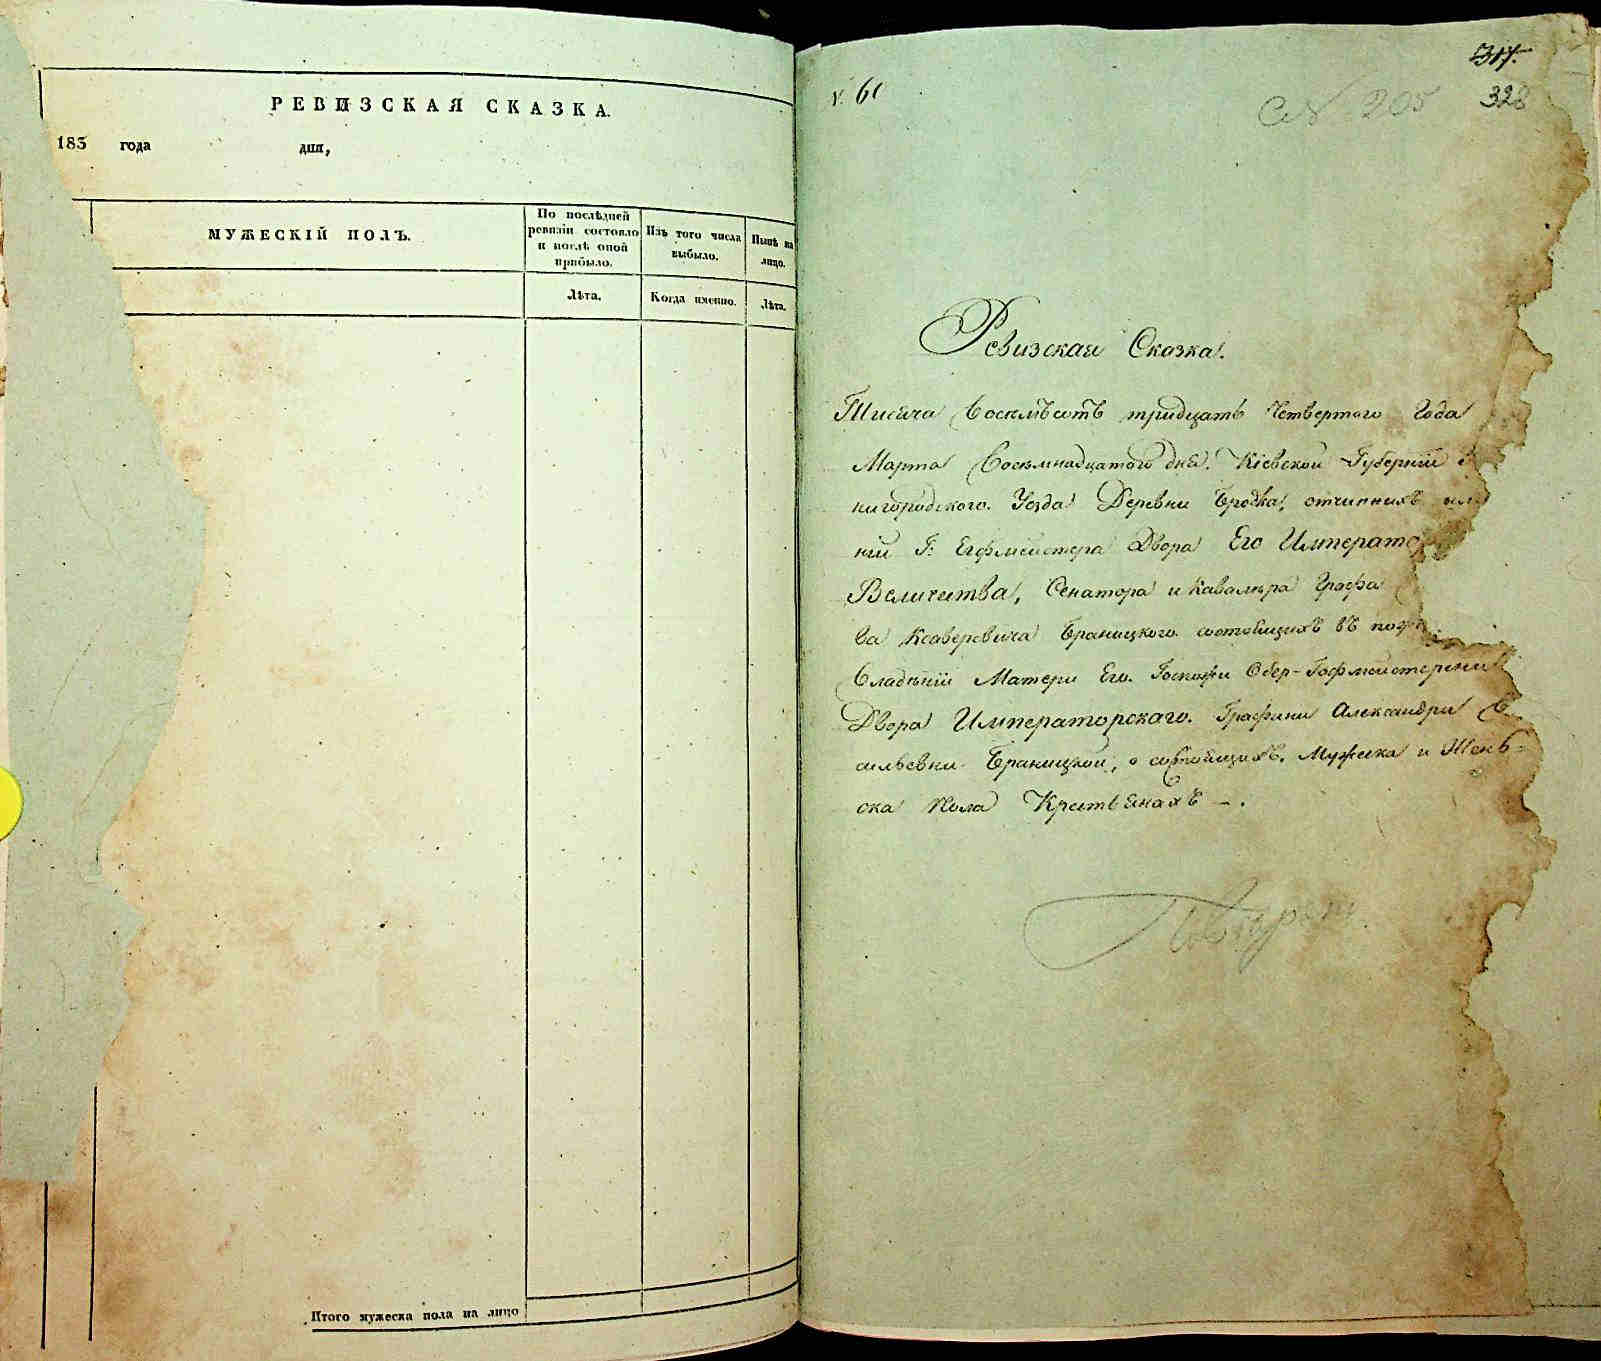 РЕВИЗСКАЯ СКАЗКА.
183 года дня,
МУЖЕСКІЙ ПОЛЪ.
По послѣдней
ревизіи состояло
и послѣ оной
прибыло.
Изъ того числа
выбыло.
Нынѣ на
лицо.
Лѣта.
Когда именно.
Лѣта.
Итого мужеска пола на лицо
317.
328
205
Ревизская Сказка.
Тисяча Восемьсотъ тридцать Четвертого Года
Марта Восемнадцатого дня. Кіевской Губерніи
нигородского Уезда Деревни Бродка, отчинныхъ име
ній Г: Егермейстера Двора Его Император
Величества, Сенатора и Кавалера Графа
ва Ксаверевича Браницкого состоящихъ въ
Владѣніи Матери Его Госпожи Обер-Гофмейстерини
Двора Императорскаго Графини Александри В
сильевни Браницкой, о состоящихъ Мужеска и Жень=
ска Пола Крестьянахъ — .